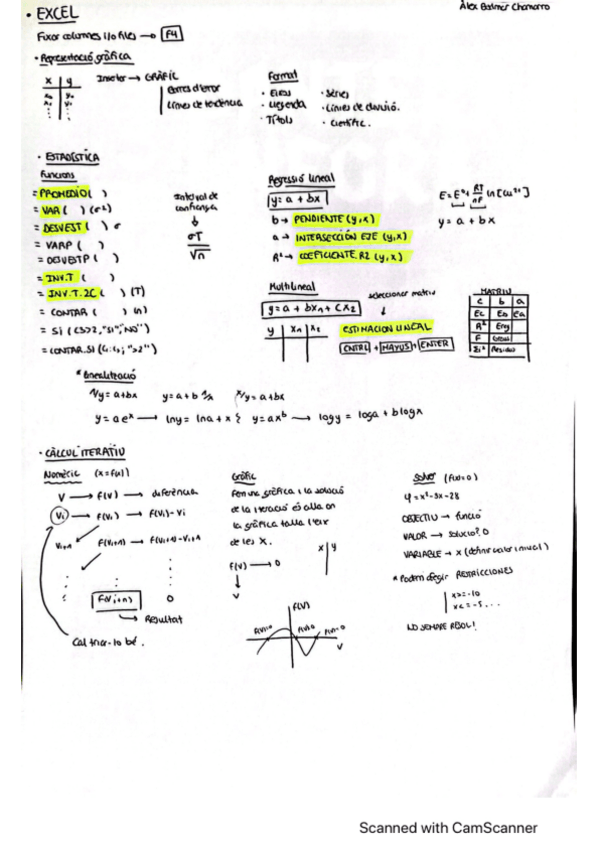 Àlex Balmer Chamorro
· EXCEL
Fixar columnes i/o files → F4
· Representació gràfica
x y Insertar → GRÀFIC
x₀ y₀
x₁ y₁
Barres d'error
Línies de tendència
Format
· Eixos · Sèries
· Llegenda · Línies de divisió.
· Títols · Científic.
· ESTADÍSTICA
Funcions
= PROMEDIO ( )
= VAR ( ) (σ²)
= DESVEST ( ) σ
= VARP ( )
= DESVESTP ( )
= INV.T ( )
= INV.T.2C ( ) (T)
= CONTAR ( ) (n)
= SI (C5>2,"SI","NO")
= CONTAR.SI ( ; ">2")
Interval de
confiança
↓
σT
√n
Regressió lineal
y = a + bx
b → PENDIENTE (y,x)
a → INTERSECCIÓN EJE (y,x)
R² → COEFICIENTE.R2 (y,x)
E = E° + RT/nF ln [Cu²⁺]
y = a + bx
Multilineal
y = a + bx₁ + cx₂
y x₁ x₂
seleccionar matriu
↓
ESTIMACION LINEAL
CNTRL + MAYUS + ENTER
MATRIU
c b a
Ec Eb Ea
R² Ey
F
Residus
* Linealització
1/y = a+bx y = a + b 1/x x/y = a+bx
y = a eˣ → lny = lna + x } y = axᵇ → log y = log a + b log x
· CÀLCUL ITERATIU
Numèric (x = f(x))
V → f(V) → diferència
Vi → f(Vi) → f(Vi) - Vi
Vi+1 f(Vi+1) → f(Vi+1) - Vi+1
f(Vi+n) 0
→ Resultat
Cal triar-lo bé.
Gràfic
Fem una gràfica i la solució
de la iteració és allà on
la gràfica talla l'eix
de les X.
x | y
f(V) → 0
↓
V
f(V)
f(V)=0 f(V)=0 f(V)=0
V
Solver (f(x)=0)
y = x² - 3x - 28
OBJECTIU → funció
VALOR → solució? 0
VARIABLE → x (definir valor inicial)
* Podem afegir RESTRICCIONS
x >= -10
x <= -5 ...
NO SEMPRE RESOL!
Scanned with CamScanner